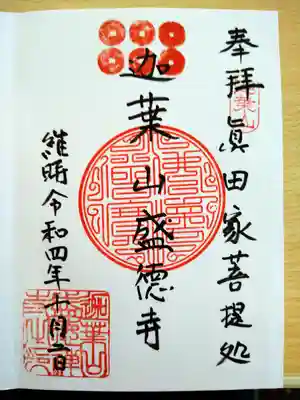 奉拝 眞田家菩提処
迦葉山盛徳寺
維時令和四年十月二日